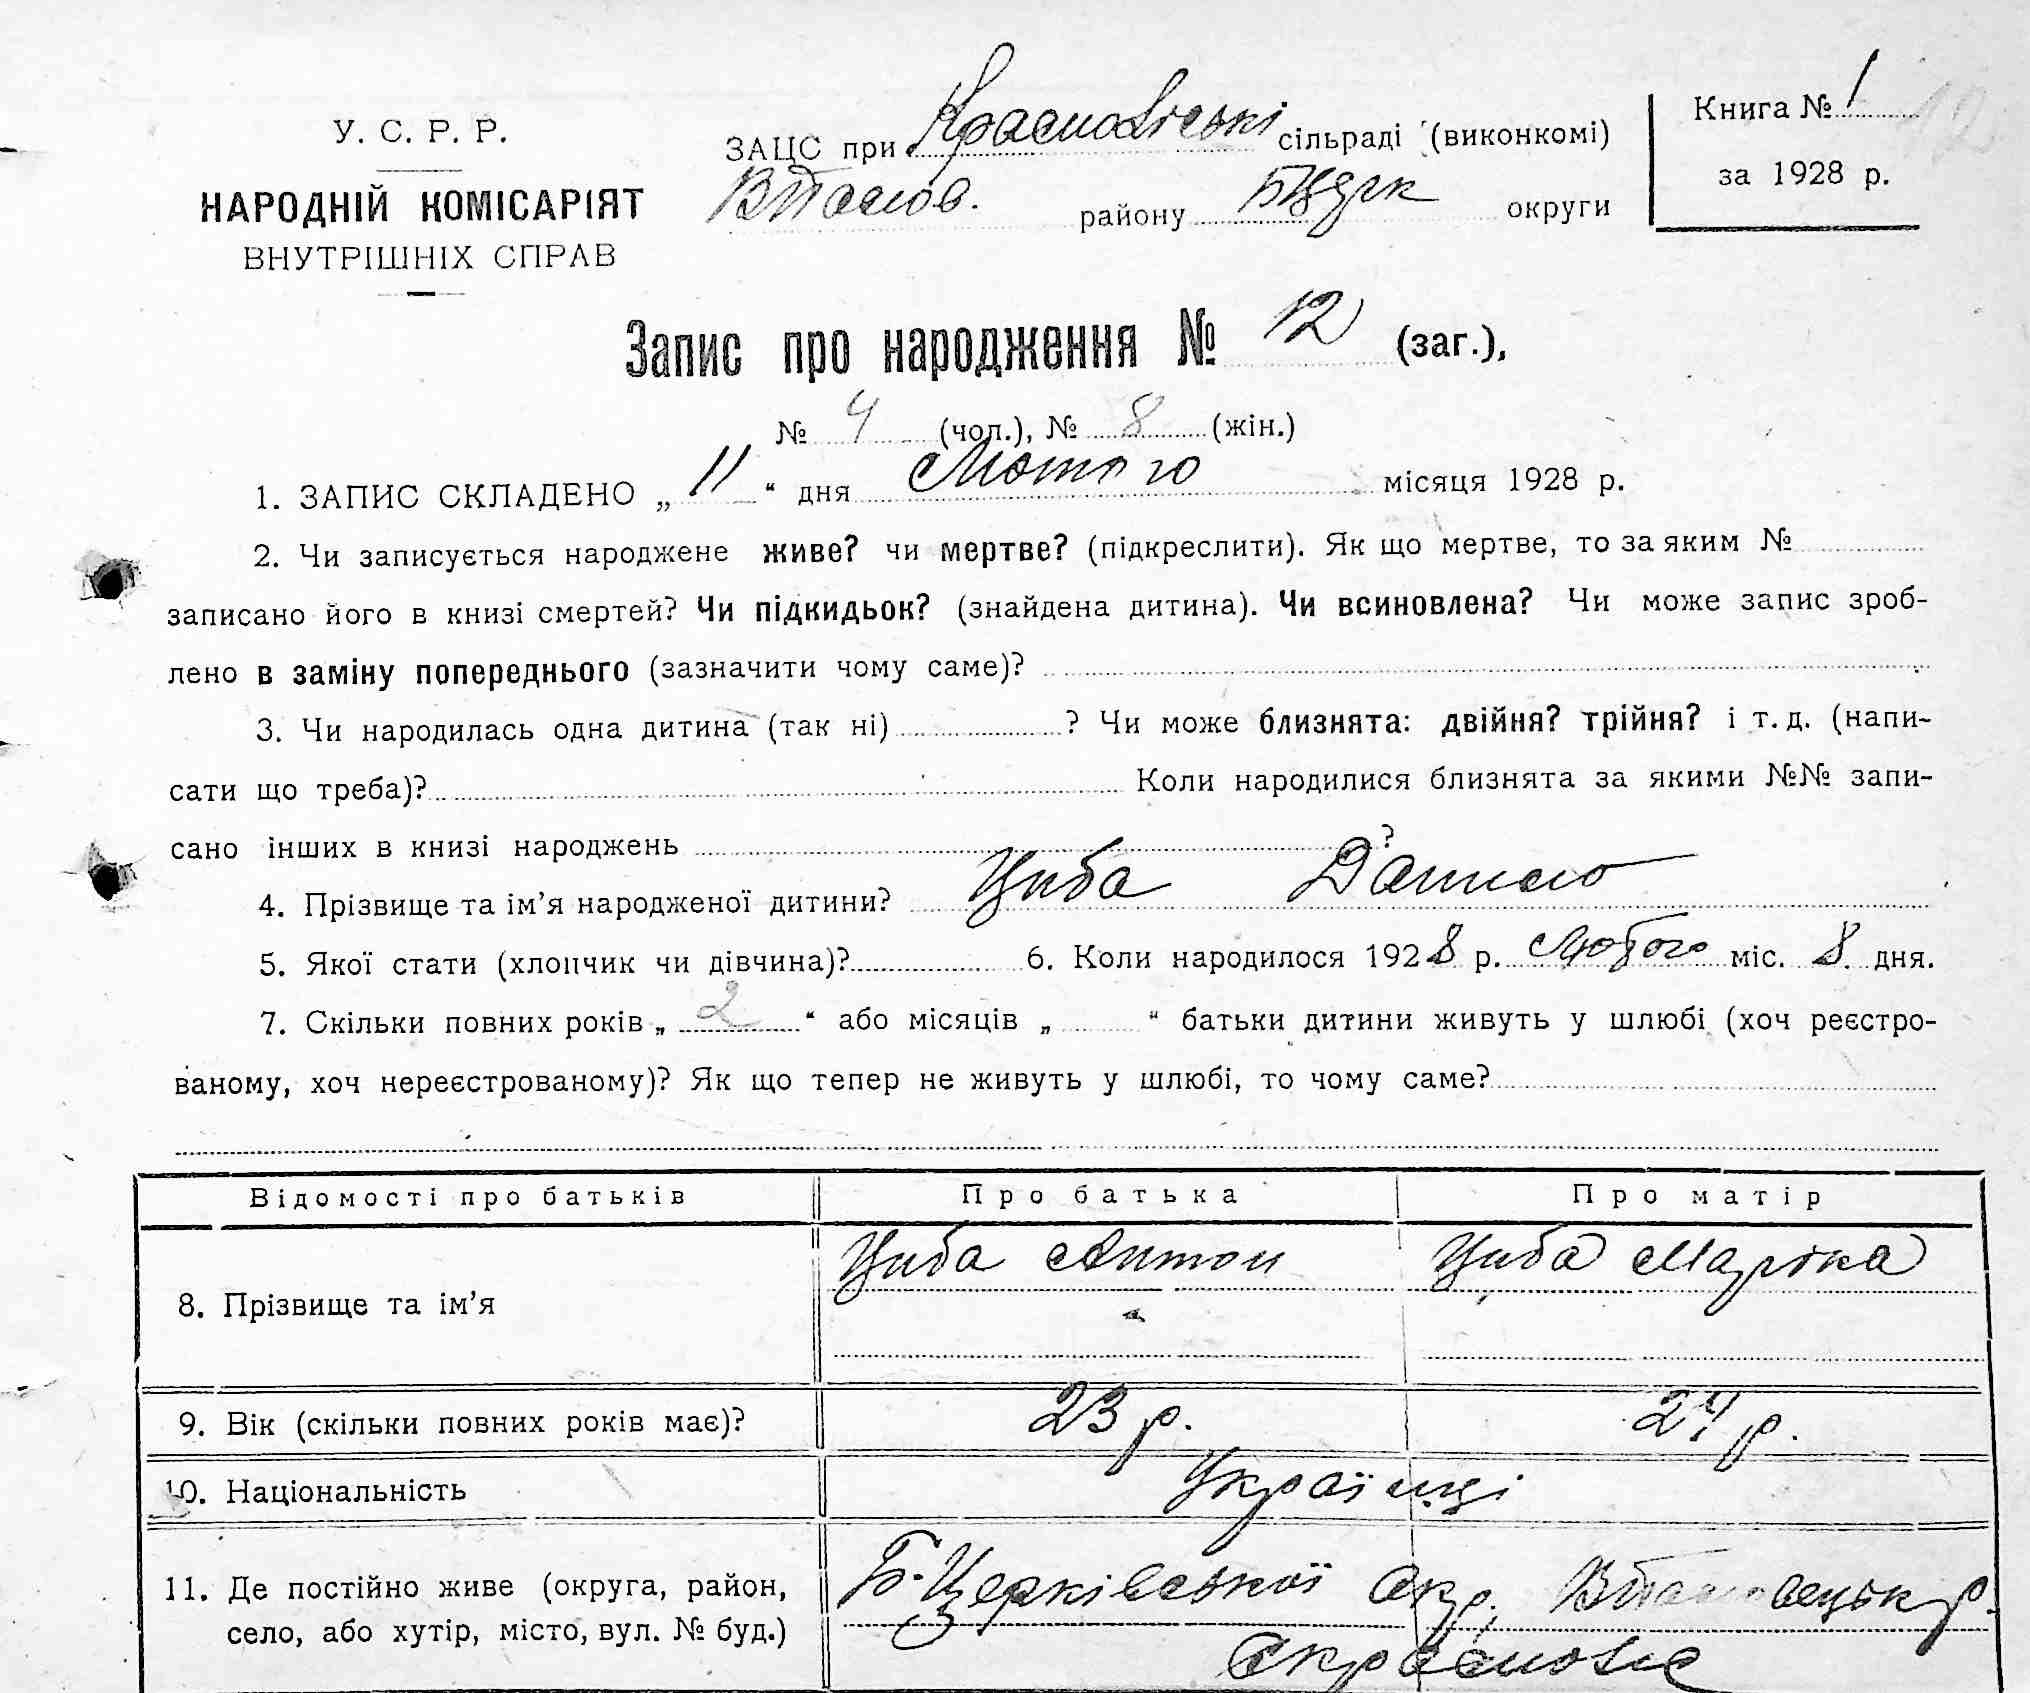 У. С. Р. Р.
НАРОДНІЙ КОМІСАРІЯТ
ВНУТРІШНІХ СПРАВ
ЗАЦС при Красноліські сільраді (виконкомі)
району БЦерк округи
Книга № 1
за 1928 р.
12
Запис про народження № 12 (заг.),
№ 4 (чол.), № 8 (жін.)
1. ЗАПИС СКЛАДЕНО „ 11 “ дня Лютого місяця 1928 р.
2. Чи записується народжене живе? чи мертве? (підкреслити). Як що мертве, то за яким №
записано його в книзі смертей? Чи підкидьок? (знайдена дитина). Чи всиновлена? Чи може запис зроб-
лено в заміну попереднього (зазначити чому саме)?
3. Чи народилась одна дитина (так ні) ? Чи може близнята: двійня? трійня? і т. д. (напи-
сати що треба)? Коли народилися близнята за якими №№ запи-
сано інших в книзі народжень ?
4. Прізвище та ім’я народженої дитини? Циба Данило
5. Якої стати (хлопчик чи дівчина)? 6. Коли народилося 1928 р. Лютого міс. 8 дня.
7. Скільки повних років „ 2 “ або місяців „ “ батьки дитини живуть у шлюбі (хоч реєстро-
ваному, хоч нереєстрованому)? Як що тепер не живуть у шлюбі, то чому саме?
Відомості про батьків Про батька Про матір
8. Прізвище та ім’я Циба Антон Циба Марика
9. Вік (скільки повних років має)? 23 р. 24 р.
10. Національність Українці
11. Де постійно живе (округа, район, Б-Церківської окр.
село, або хутір, місто, вул. № буд.)